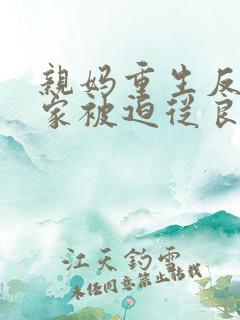 親妈重生反
家被迫從良
江天钓雪
未经同意禁止转载